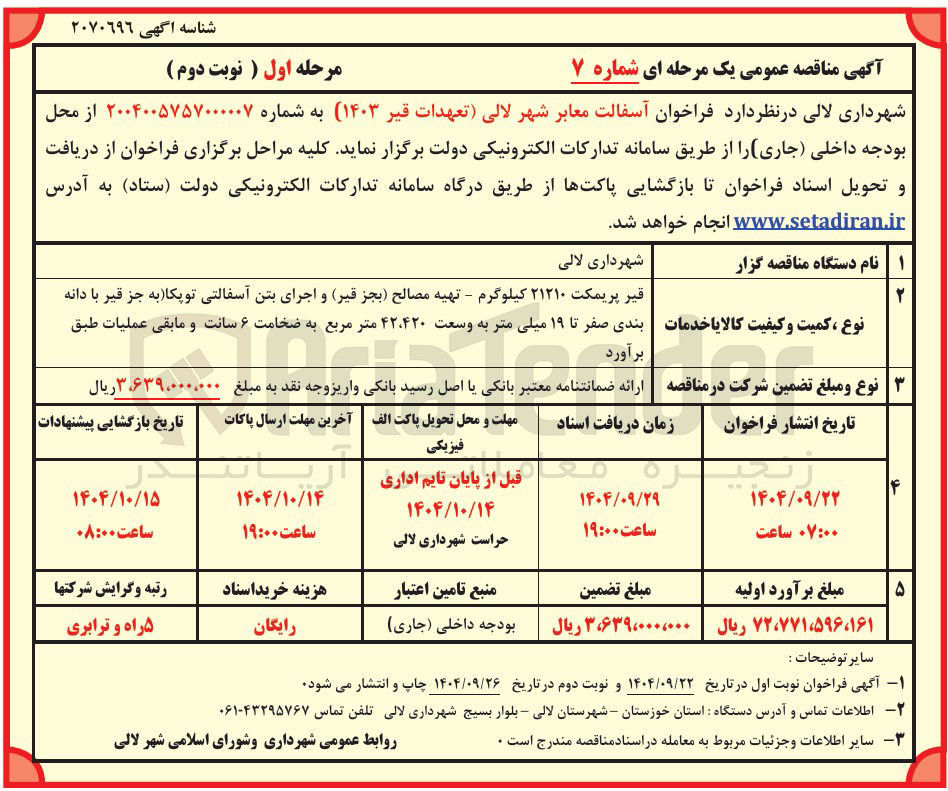 شناسه آگهی ۲۰۷۰۶۹۶
آگهی مناقصه عمومی یک مرحله ای شماره ۷ مرحله اول ( نوبت دوم )
شهرداری لالی درنظردارد فراخوان آسفالت معابر شهر لالی (تعهدات قیر ۱۴۰۳) به شماره ۲۰۰۴۰۰۵۷۵۷۰۰۰۰۰۷ از محل
بودجه داخلی (جاری)را از طریق سامانه تدارکات الکترونیکی دولت برگزار نماید. کلیه مراحل برگزاری فراخوان از دریافت
و تحویل اسناد فراخوان تا بازگشایی پاکت‌ها از طریق درگاه سامانه تدارکات الکترونیکی دولت (ستاد) به آدرس
www.setadiran.ir انجام خواهد شد.
۱ نام دستگاه مناقصه گزار شهرداری لالی
۲ نوع ،کمیت وکیفیت کالایاخدمات
قیر پریمکت ۲۱۲۱۰ کیلوگرم - تهیه مصالح (بجز قیر) و اجرای بتن آسفالتی توپکا(به جز قیر با دانه
بندی صفر تا ۱۹ میلی متر به وسعت ۴۲،۴۲۰ متر مربع به ضخامت ۶ سانت و مابقی عملیات طبق
برآورد
۳ نوع ومبلغ تضمین شرکت درمناقصه ارائه ضمانتنامه معتبر بانکی یا اصل رسید بانکی واریزوجه نقد به مبلغ ۳،۶۳۹،۰۰۰،۰۰۰ریال
۴
تاریخ انتشار فراخوان
زمان دریافت اسناد
مهلت و محل تحویل پاکت الف
فیزیکی
آخرین مهلت ارسال پاکات
تاریخ بازگشایی پیشنهادات
۱۴۰۴/۰۹/۲۲
۰۷:۰۰ ساعت
۱۴۰۴/۰۹/۲۹
ساعت۱۹:۰۰
قبل از پایان تایم اداری
۱۴۰۴/۱۰/۱۴
حراست شهرداری لالی
۱۴۰۴/۱۰/۱۴
ساعت۱۹:۰۰
۱۴۰۴/۱۰/۱۵
ساعت۰۸:۰۰
۵ مبلغ برآورد اولیه مبلغ تضمین منبع تامین اعتبار هزینه خریداسناد رتبه وگرایش شرکتها
۷۲،۷۷۱،۵۹۶،۱۶۱ ریال ۳،۶۳۹،۰۰۰،۰۰۰ ریال بودجه داخلی (جاری) رایگان ۵راه و ترابری
سایرتوضیحات :
۱- آگهی فراخوان نوبت اول درتاریخ ۱۴۰۴/۰۹/۲۲ و نوبت دوم درتاریخ ۱۴۰۴/۰۹/۲۶ چاپ و انتشار می شود۰
۲- اطلاعات تماس و آدرس دستگاه : استان خوزستان –شهرستان لالی – بلوار بسیج شهرداری لالی تلفن تماس ۴۳۲۹۵۷۶۷-۰۶۱
۳- سایر اطلاعات وجزئیات مربوط به معامله دراسنادمناقصه مندرج است ۰ روابط عمومی شهرداری وشورای اسلامی شهر لالی
AriaTender
زنجیره معاملاتی آریاتندر